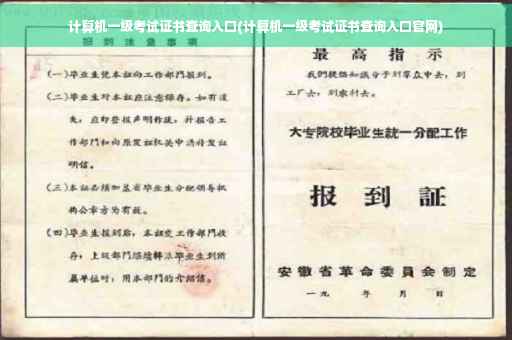 计算机一级考试证书查询入口(计算机一级考试证书查询入口官网)
报到注意事项
(一)毕业生凭本证向工作部门报到。
(二)毕业生对本证应注意保存。如有遗
失,应即登报声明作废,并报告工
作部门和向原发证机关申请补发证
明信。
(三)本证必须加盖省毕业生分配领导机
构公章方为有效。
(四)毕业生报到后,本证交工作部门收
存;上级部门继续转派毕业生到所
属单位时,用本部门的介绍信。
最高指示
我们提倡知识分子到群众中去,到
工厂去,到农村去。
大专院校毕业生统一分配工作
报到証
安徽省革命委員会制定
一九 年 月 日